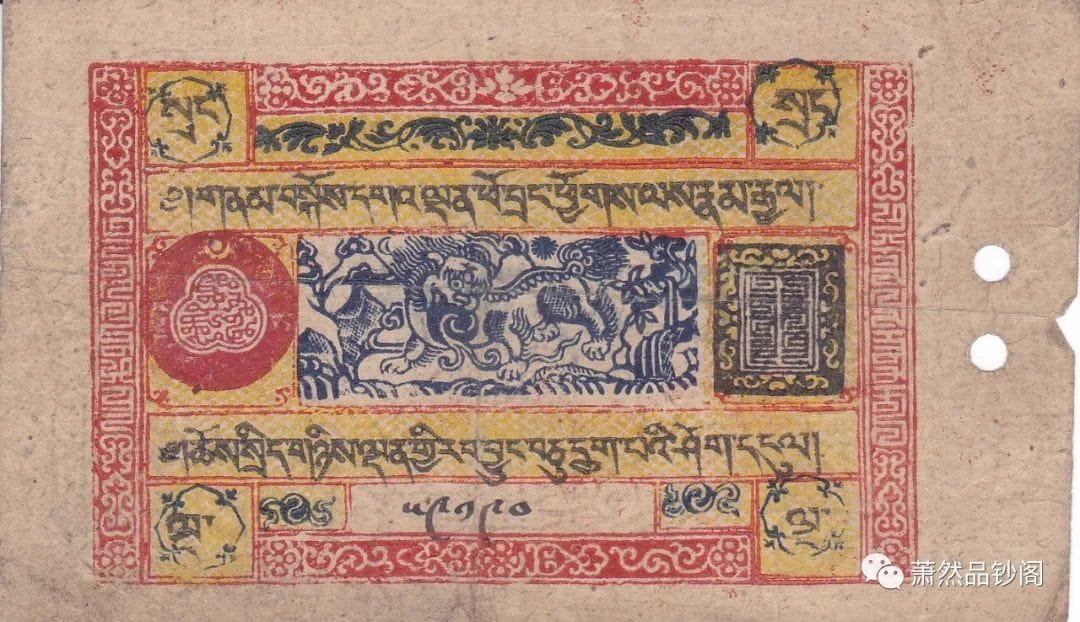 སྲང སྲང
༄། གནམ་བསྐོས་དགའ་ལྡན་ཕོ་བྲང་ཕྱོགས་ལས་རྣམ་རྒྱལ།
༄། ཆོས་སྲིད་གཉིས་ལྡན་གྱི་རབ་བྱུང་བཅུ་དྲུག་པའི་ཤོག་དངུལ།
ལྔ་ ལྔ་
萧然品钞阁